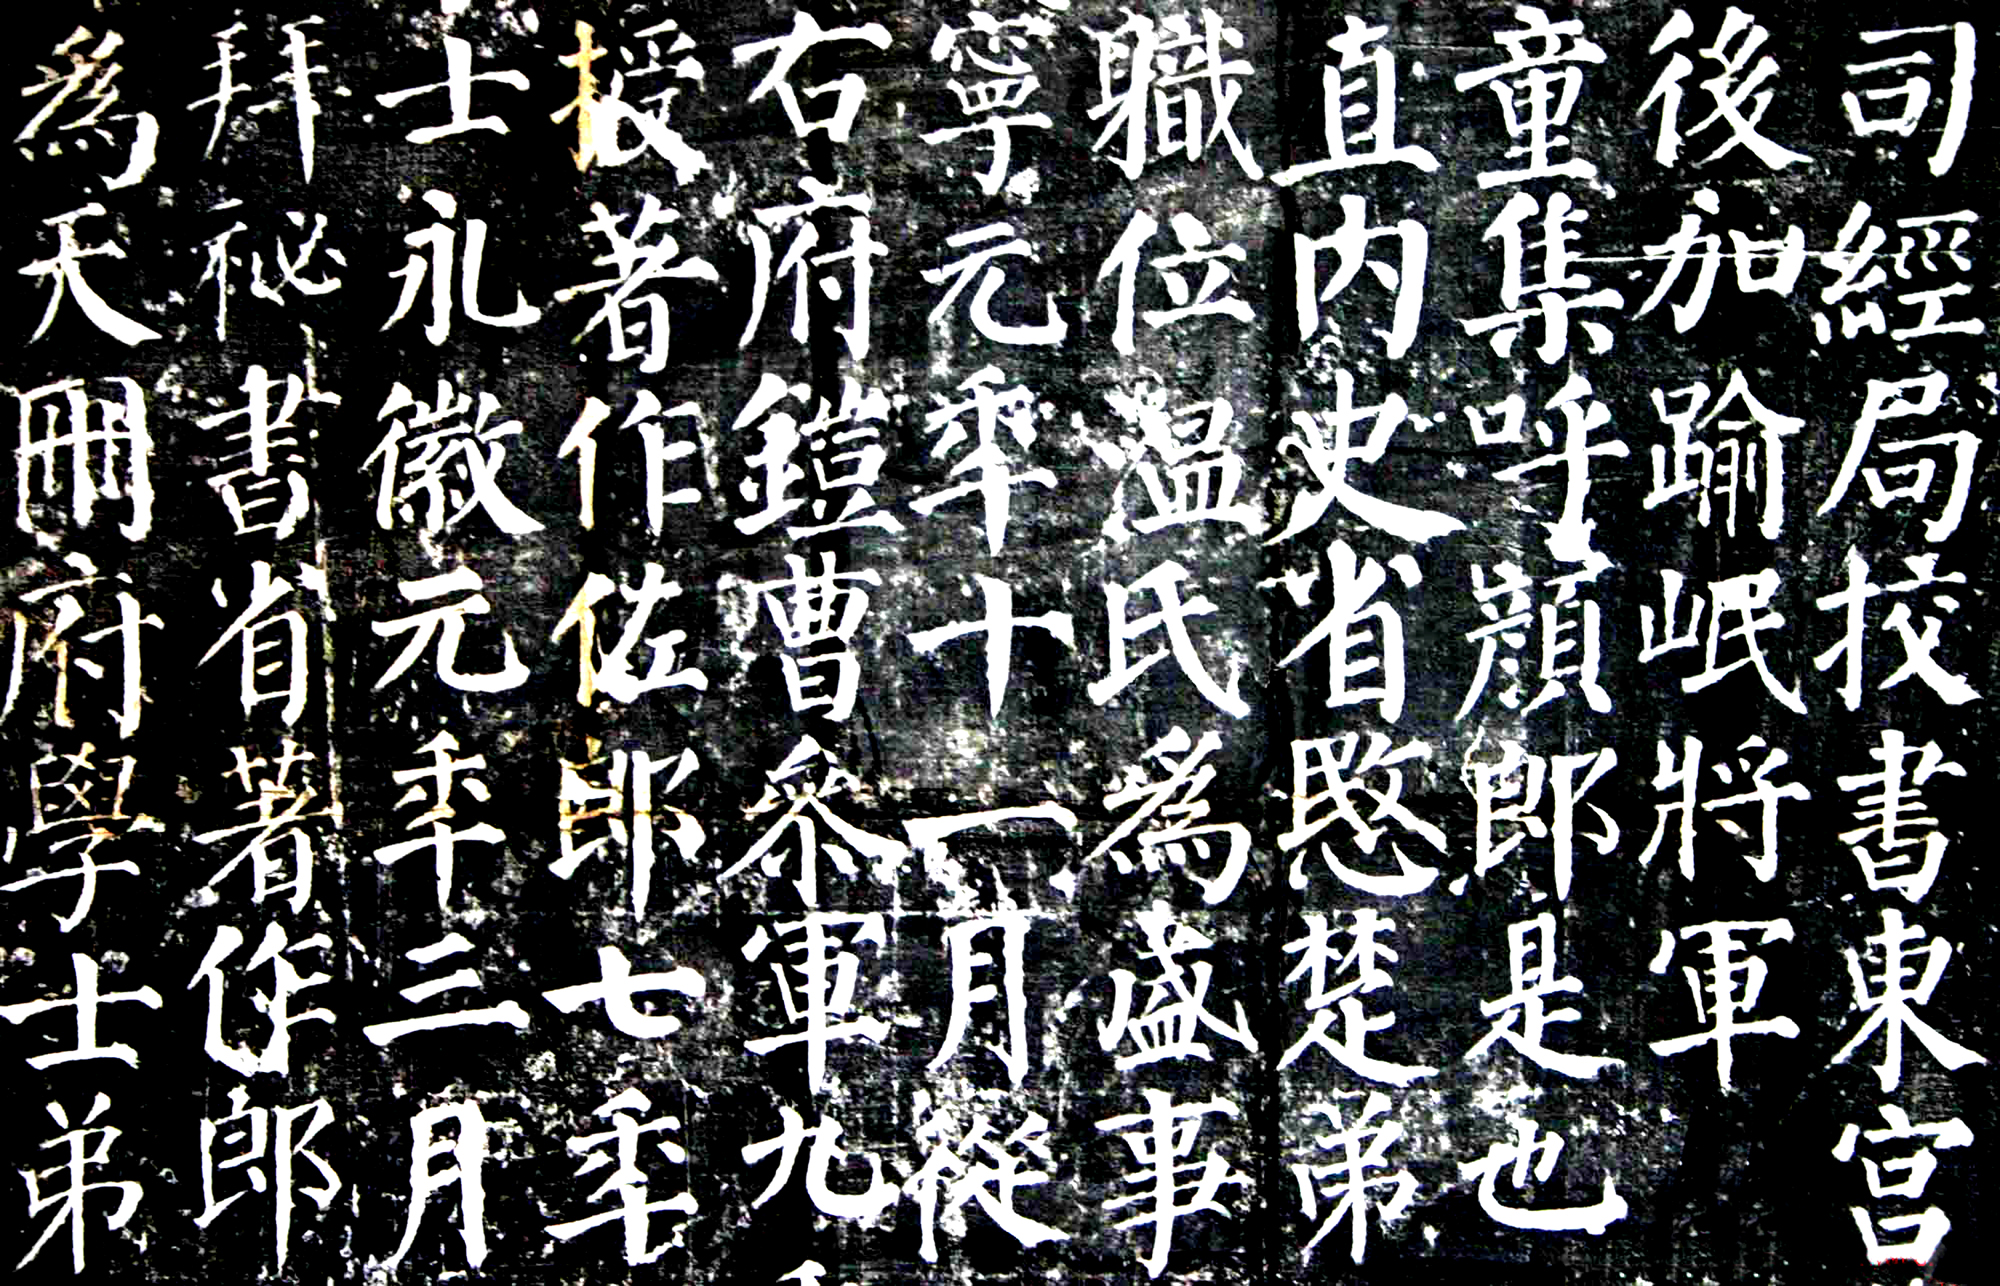 司經局挍書東宮
後加踰岷將軍
童集呼顔郎是也
直内史省愍楚弟
職位温氏爲盛事
寧元年十一月從
右府鎧曹參軍九
授著作佐郎七年
士永徽元年三月
拜祕書省著作郎
爲天冊府學士弟